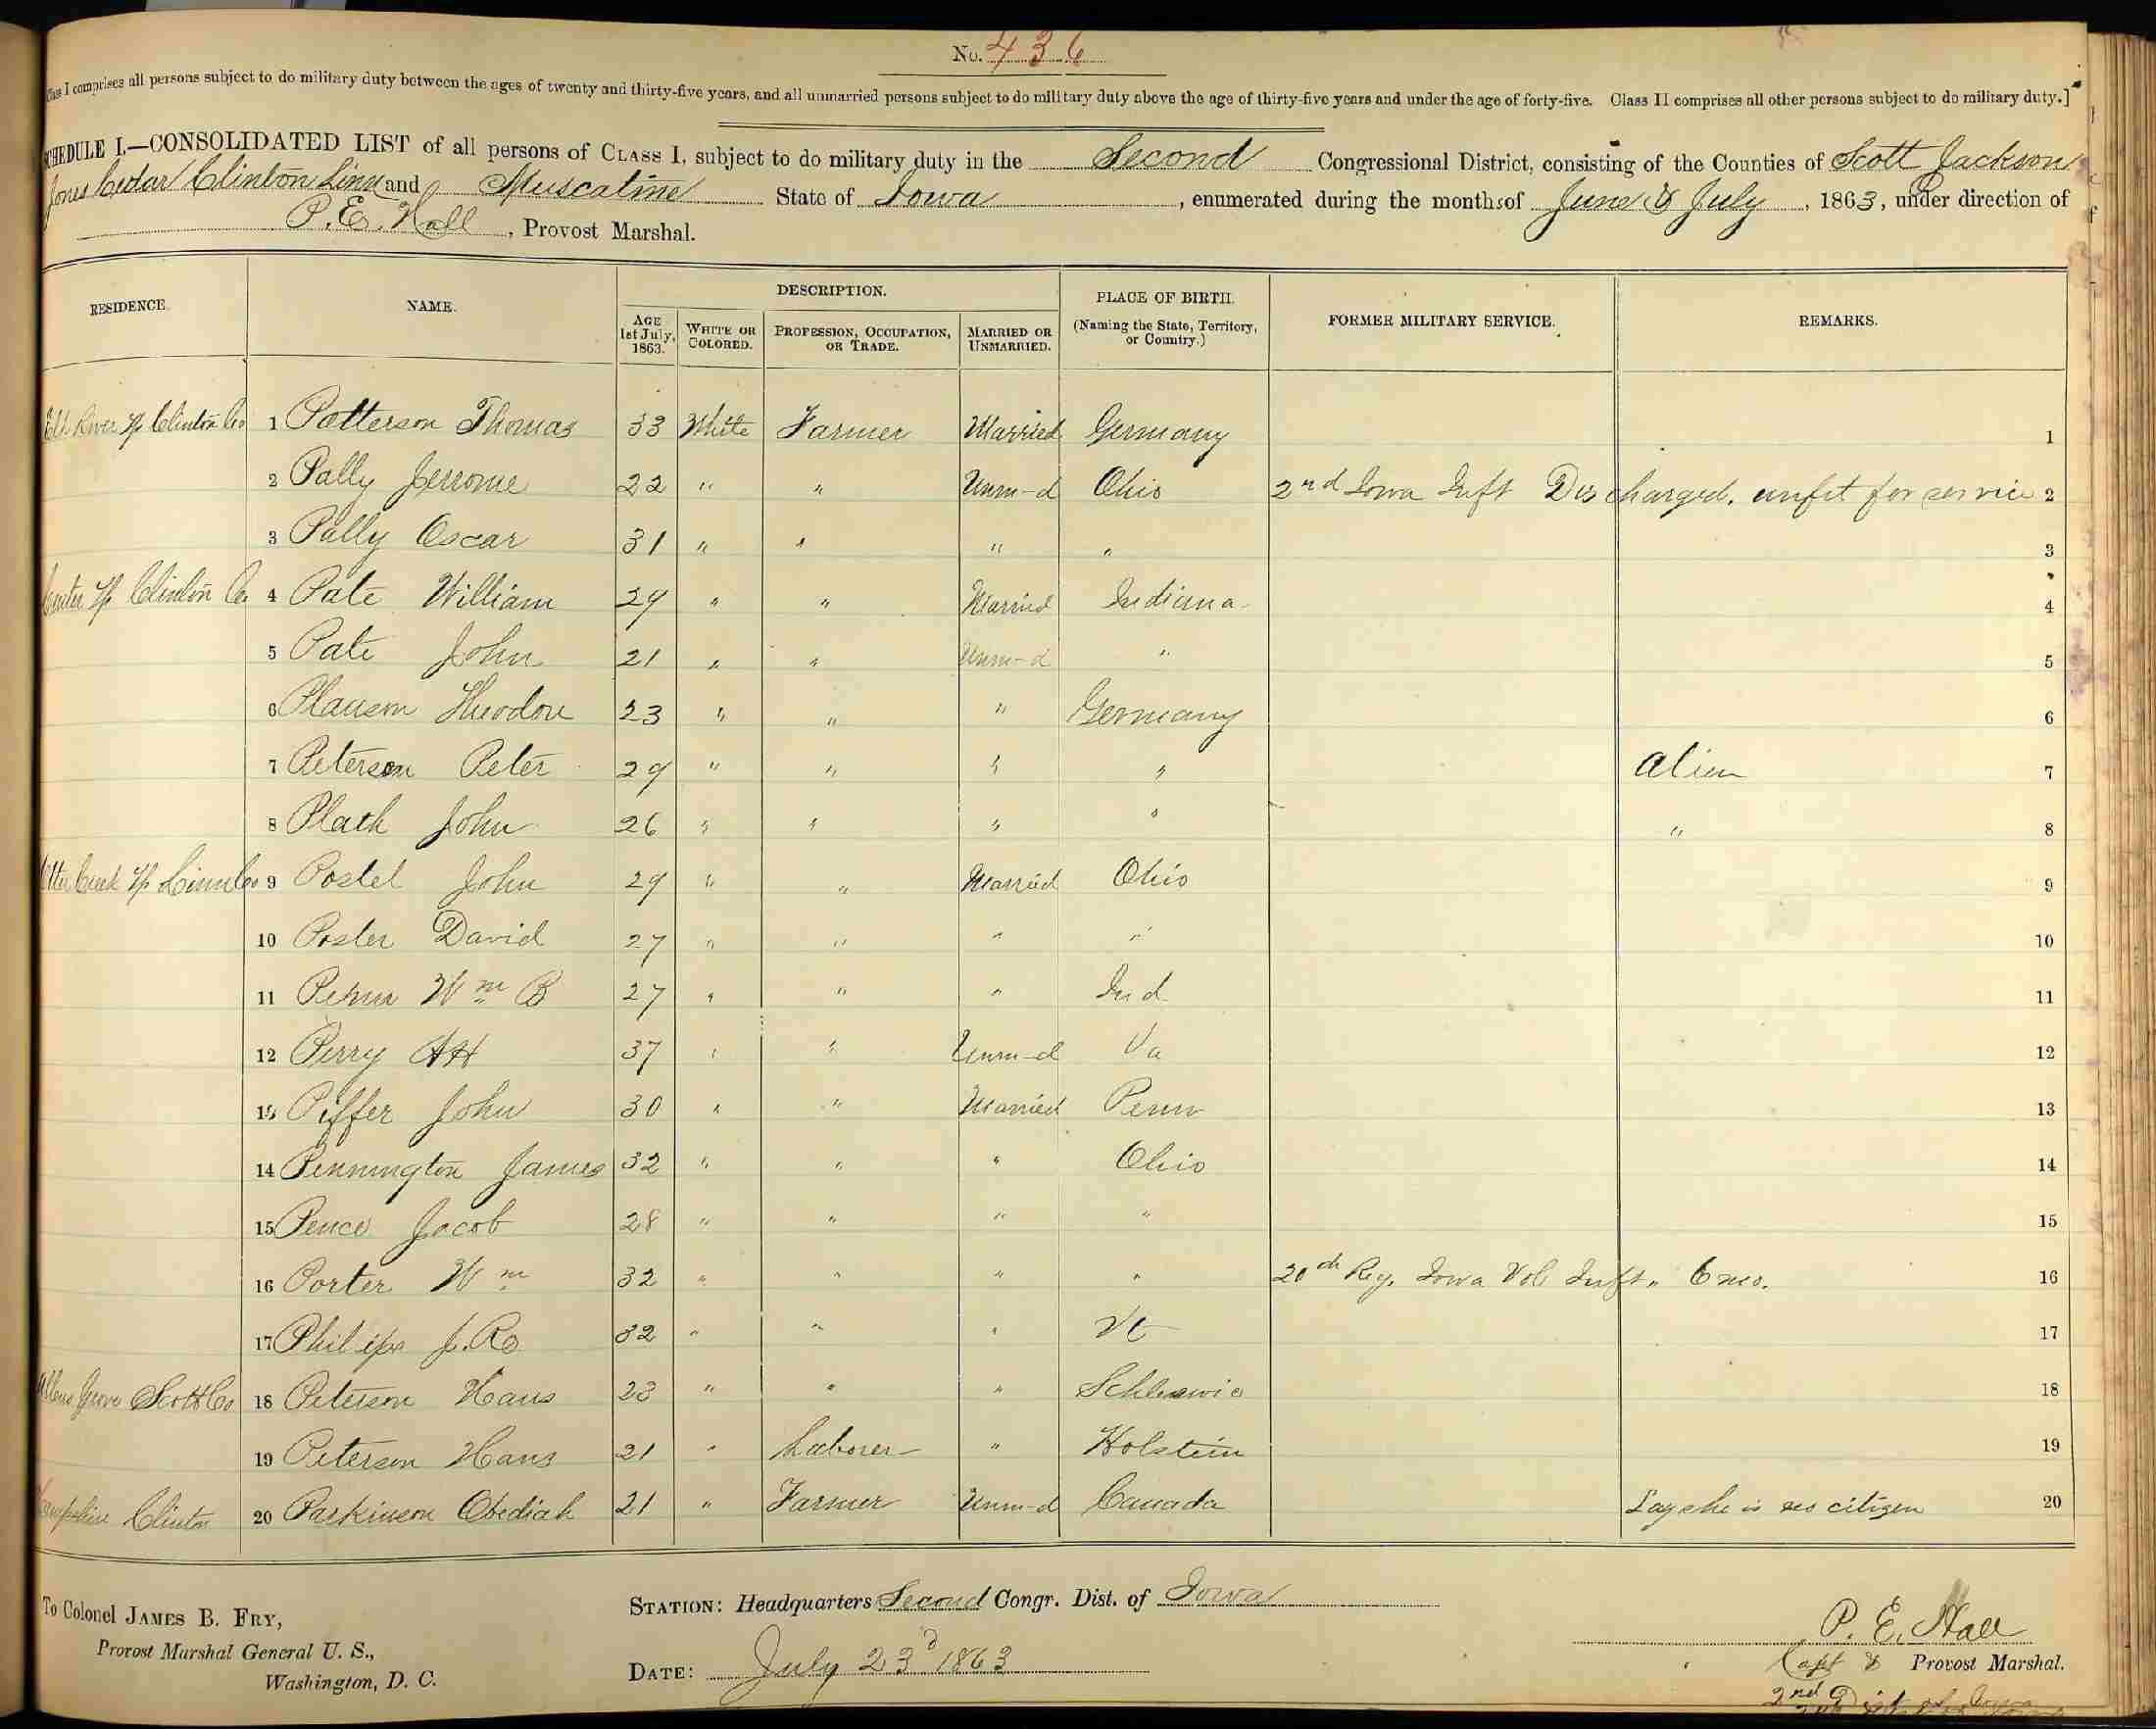 No. 436
Class I comprises all persons subject to do military duty between the ages of twenty and thirty-five years, and all unmarried persons subject to do military duty above the age of thirty-five years and under the age of forty-five. Class II comprises all other persons subject to do military duty.]
SCHEDULE I.—CONSOLIDATED LIST of all persons of CLASS I, subject to do military duty in the Second Congressional District, consisting of the Counties of Scott Jackson
Jones Cedar Clinton Linn and Muscatine State of Iowa, enumerated during the months of June & July, 1863, under direction of
P. E. Hall, Provost Marshal.
RESIDENCE. NAME. DESCRIPTION. PLACE OF BIRTH. (Naming the State, Territory, or Country.) FORMER MILITARY SERVICE. REMARKS.
AGE 1st July, 1863. WHITE OR COLORED. PROFESSION, OCCUPATION, OR TRADE. MARRIED OR UNMARRIED.
Elk River Tp Clinton Co 1 Patterson Thomas 33 White Farmer Married Germany 1
2 Pally Jerrome 22 " " Unm-d Ohio 2nd Iowa Inft Discharged. unfit for service 2
3 Pally Oscar 31 " " " " 3
Center Tp Clinton Co. 4 Pate William 29 " " Married Indiana 4
5 Pate John 21 " " Unm-d " 5
6 Plauson Theodore 23 " " " Germany 6
7 Peterson Peter 29 " " " " Alien 7
8 Plath John 26 " " " " " 8
Otter Creek Tp Linn Co 9 Postel John 29 " " Married Ohio 9
10 Poster David 27 " " " " 10
11 Wm B 27 " " " Ind 11
12 Perry AH 37 " " Unm-d Va 12
13 Piffer John 30 " " Married Penn 13
14 Pennington James 32 " " " Ohio 14
15 Pence Jacob 28 " " " " 15
16 Porter Wm 32 " " " " 20th Reg. Iowa Vol Inft. 6 mo. 16
17 Philips J. R. 32 " " " Vt 17
Allens Grove Scott Co 18 Peterson Hans 23 " " " Schleswic 18
19 Peterson Hans 21 " Laborer " Holstein 19
Hampshire Clinton 20 Parkinson Obediah 21 " Farmer Unm-d Canada Says he is no citizen 20
To Colonel JAMES B. FRY,
Provost Marshal General U. S.,
Washington, D. C.
STATION: Headquarters Second Congr. Dist. of Iowa
DATE: July 23d 1863
P. E. Hall
Capt & Provost Marshal.
2nd Dist of Iowa